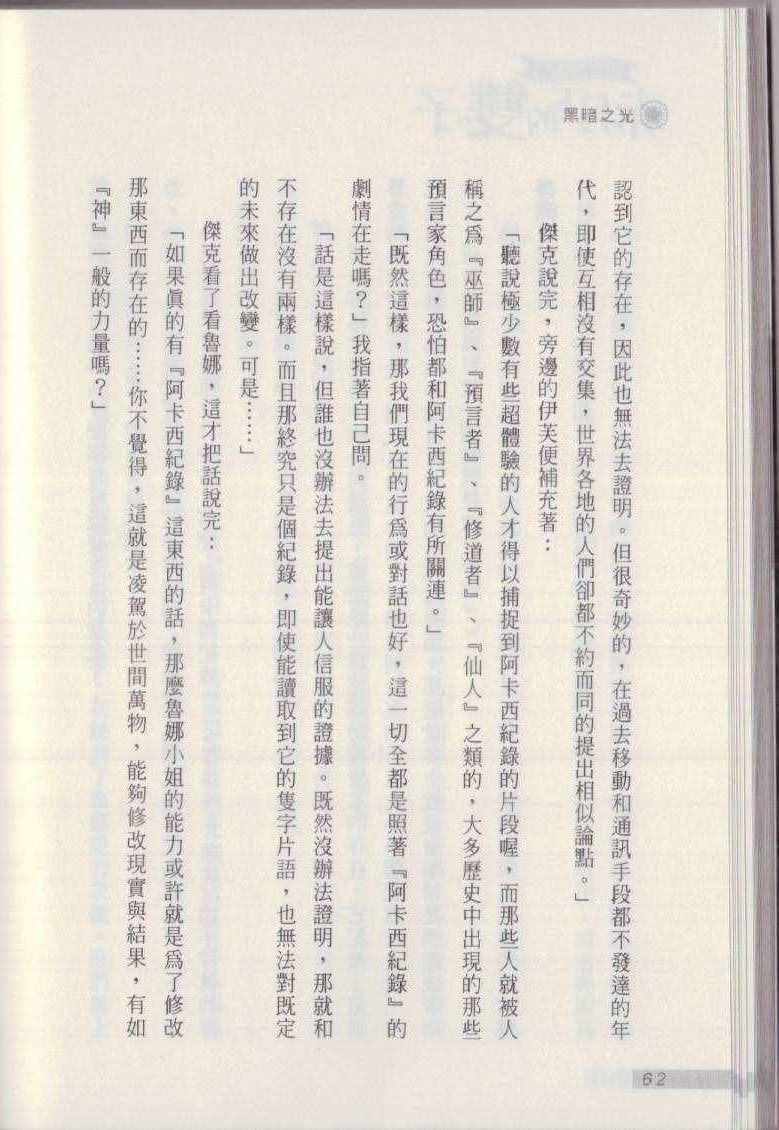 黑暗之光
認到它的存在，因此也無法去證明。但很奇妙的，在過去移動和通訊手段都不發達的年
代，即使互相沒有交集，世界各地的人們卻都不約而同的提出相似論點。」
傑克說完，旁邊的伊芙便補充著：
「聽說極少數有些超體驗的人才得以捕捉到阿卡西紀錄的片段喔，而那些人就被人
稱之為『巫師』、『預言者』、『修道者』、『仙人』之類的，大多歷史中出現的那些
預言家角色，恐怕都和阿卡西紀錄有所關連。」
「既然這樣，那我們現在的行為或對話也好，這一切全都是照著『阿卡西紀錄』的
劇情在走嗎？」我指著自己問。
「話是這樣說，但誰也沒辦法去提出能讓人信服的證據。既然沒辦法證明，那就和
不存在沒有兩樣。而且那終究只是個紀錄，即使能讀取到它的隻字片語，也無法對既定
的未來做出改變。可是……」
傑克看了看魯娜，這才把話說完：
「如果真的有『阿卡西紀錄』這東西的話，那麼魯娜小姐的能力或許就是為了修改
那東西而存在的……你不覺得，這就是凌駕於世間萬物，能夠修改現實與結果，有如
『神』一般的力量嗎？」
62